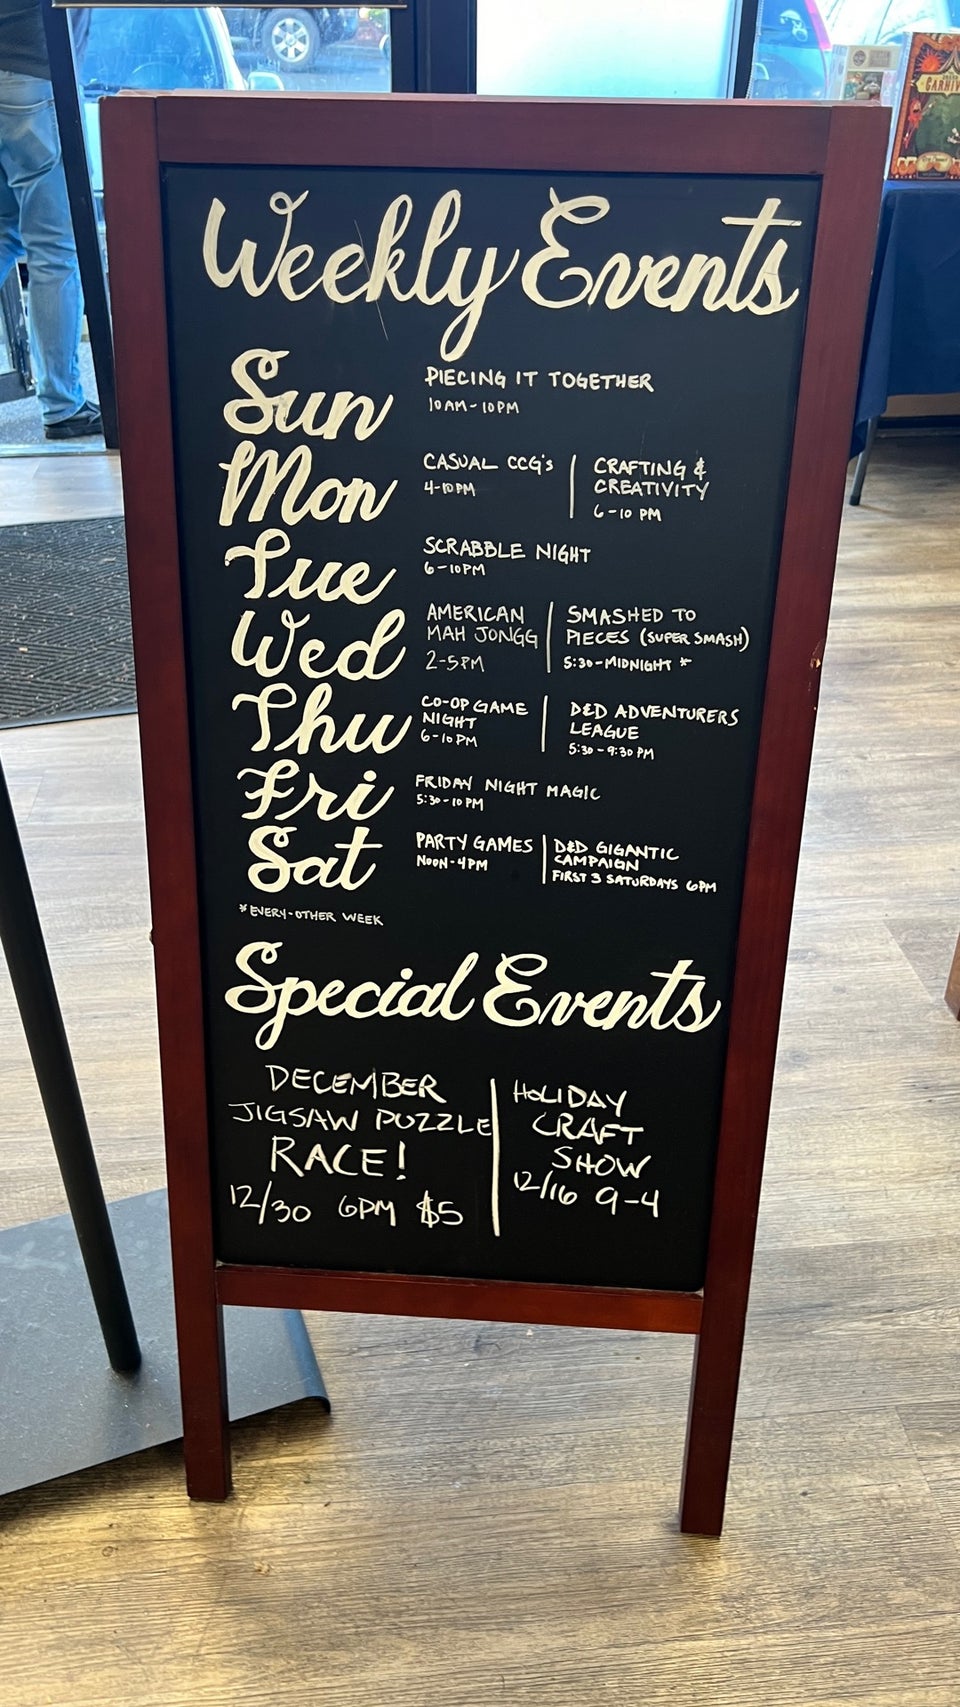 Weekly Events
Sun
PIECING IT TOGETHER
10AM-10PM
Mon
CASUAL CCG's
4-10PM
CRAFTING &
CREATIVITY
6-10 PM
Tue
SCRABBLE NIGHT
6-10PM
Wed
AMERICAN
MAH JONGG
2-5PM
SMASHED TO
PIECES (SUPER SMASH)
5:30-MIDNIGHT *
Thu
CO-OP GAME
NIGHT
6-10PM
D&D ADVENTURERS
LEAGUE
5:30-9:30 PM
Fri
FRIDAY NIGHT MAGIC
5:30-10PM
Sat
PARTY GAMES
NOON-4PM
D&D GIGANTIC
CAMPAIGN
FIRST 3 SATURDAYS 6PM
*EVERY-OTHER WEEK
Special Events
DECEMBER
JIGSAW PUZZLE
RACE!
12/30 6PM $5
HOLIDAY
CRAFT
SHOW
12/16 9-4